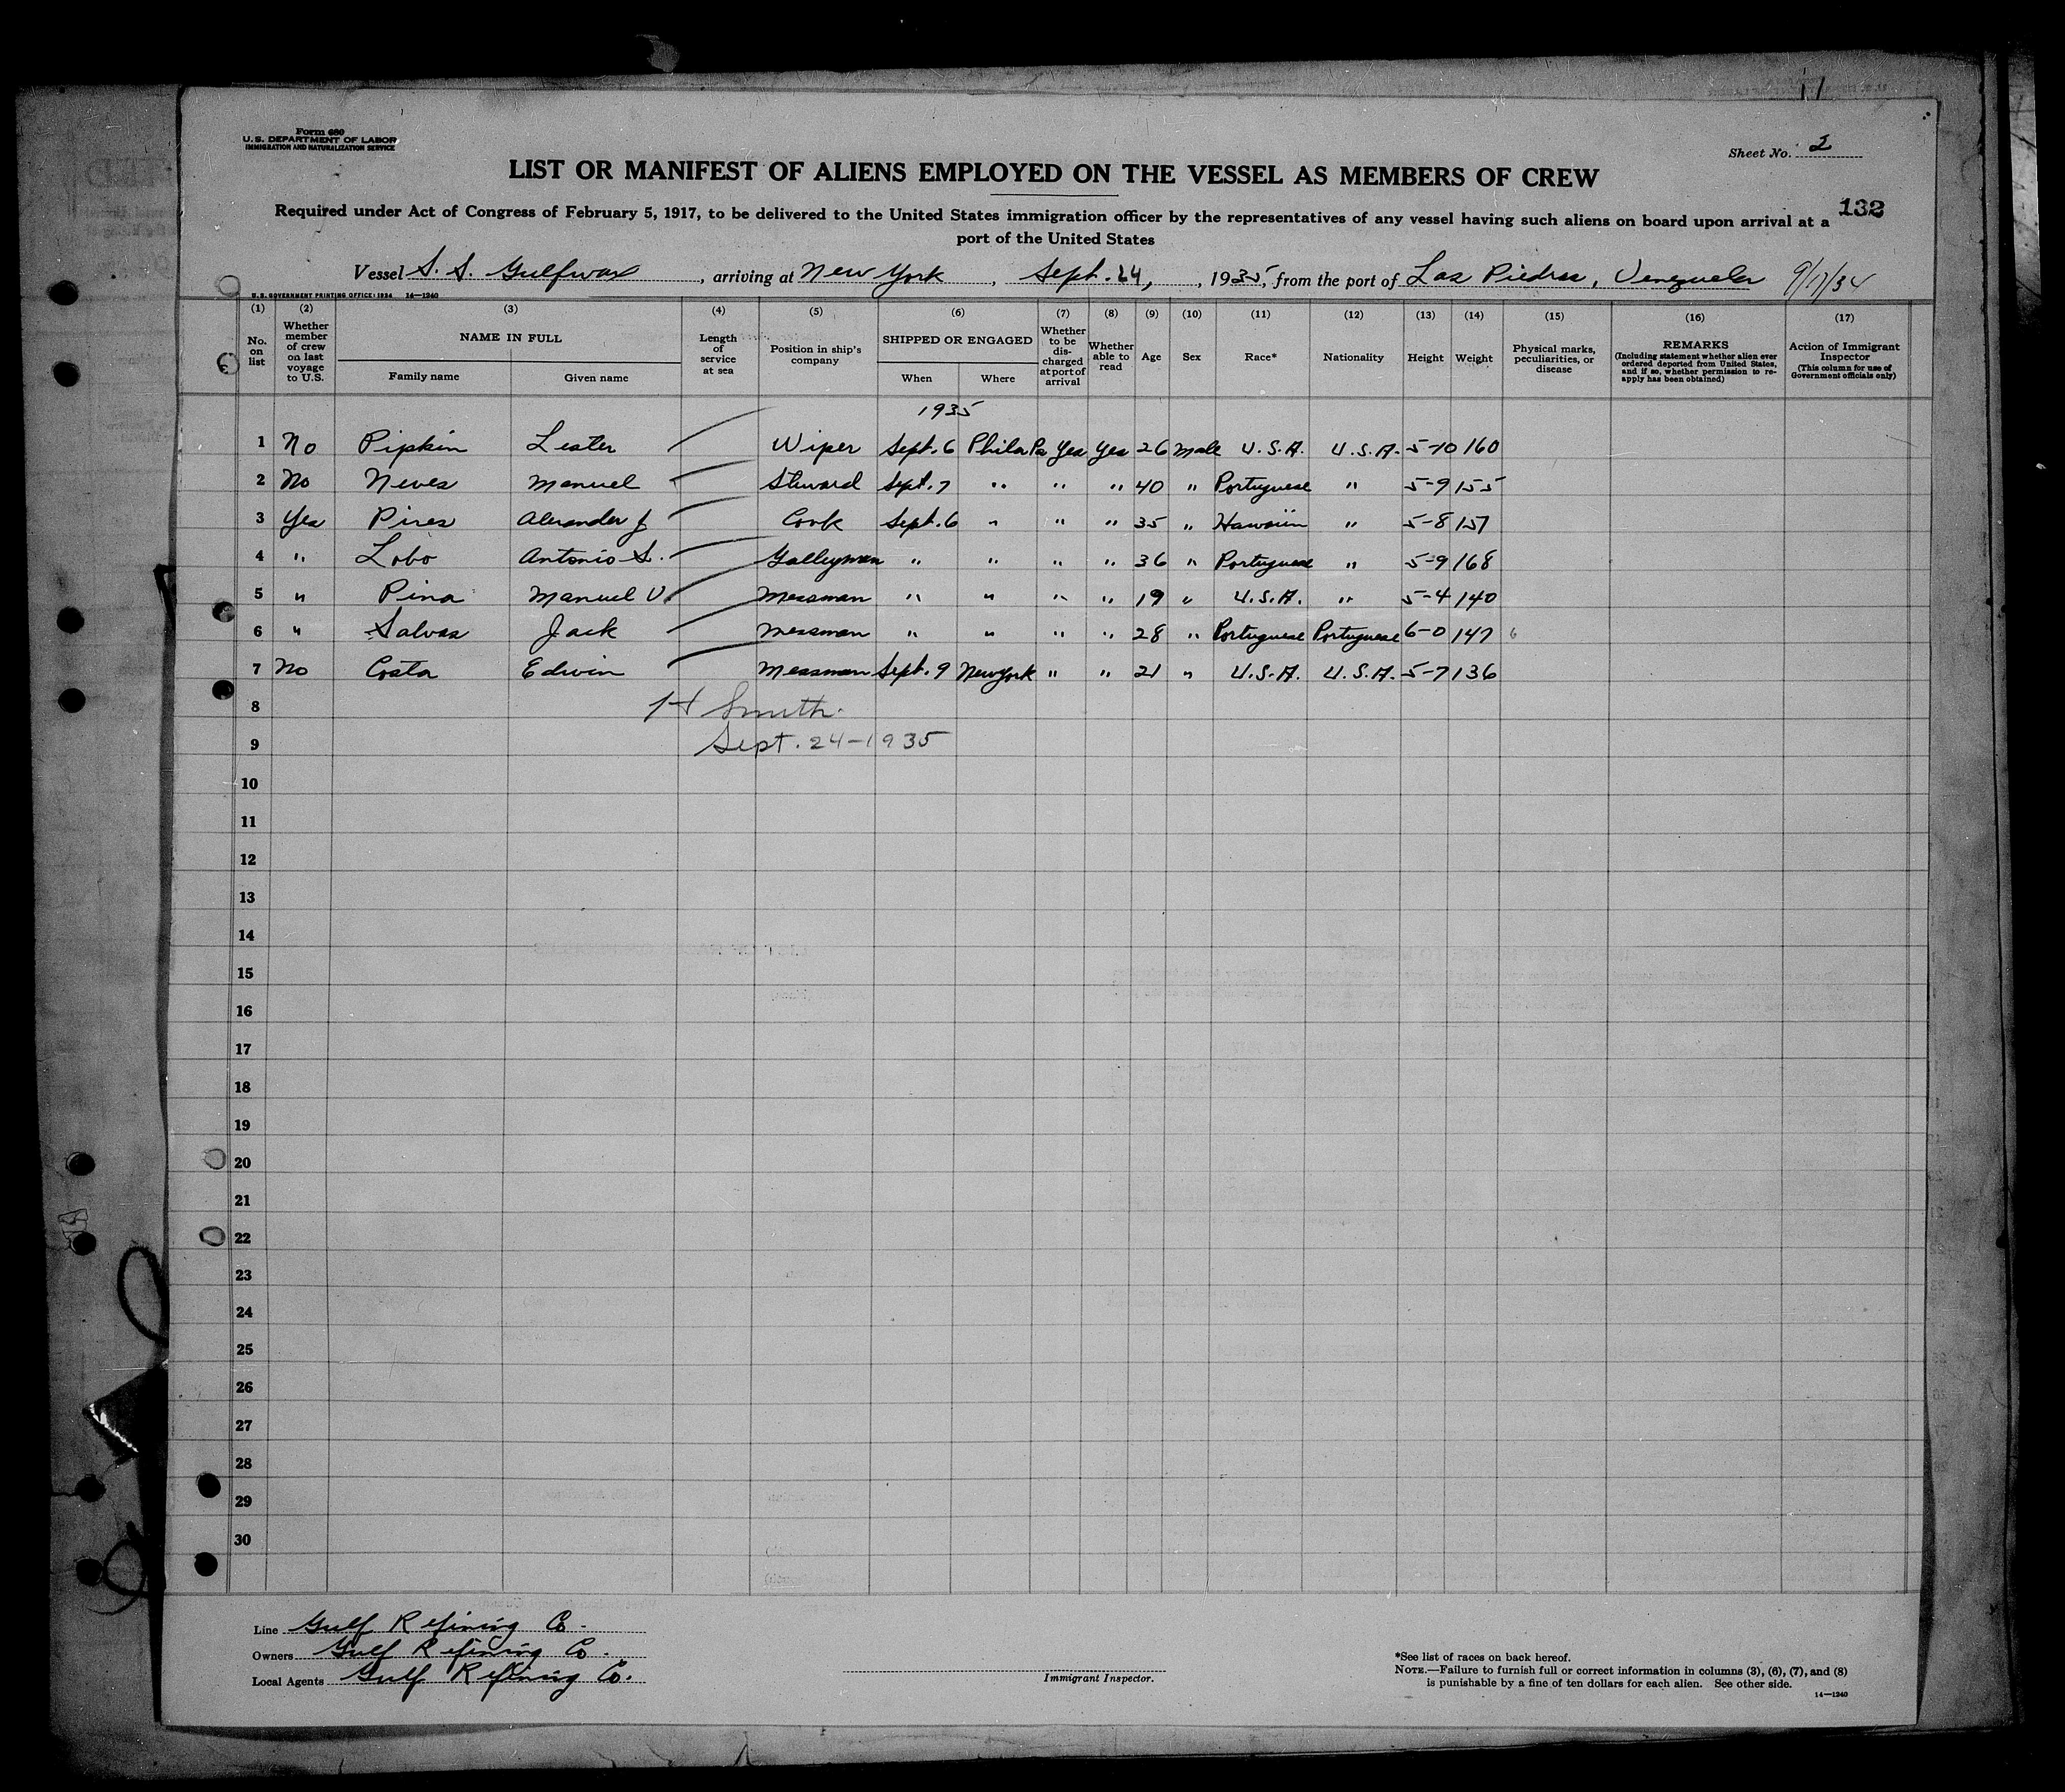 Form 680
U. S. DEPARTMENT OF LABOR
IMMIGRATION AND NATURALIZATION SERVICE
Sheet No. 2
LIST OR MANIFEST OF ALIENS EMPLOYED ON THE VESSEL AS MEMBERS OF CREW
132
Required under Act of Congress of February 5, 1917, to be delivered to the United States immigration officer by the representatives of any vessel having such aliens on board upon arrival at a
port of the United States
Vessel S. S. Gulfwax, arriving at New York, Sept. 24, 1935, from the port of Las Piedras, Venezuela 9/17/34
U. S. GOVERNMENT PRINTING OFFICE: 1934 14—1240
(1) (2) (3) (4) (5) (6) (7) (8) (9) (10) (11) (12) (13) (14) (15) (16) (17)
No. on list
Whether member of crew on last voyage to U.S.
NAME IN FULL
Family name
Given name
Length of service at sea
Position in ship's company
SHIPPED OR ENGAGED
When
Where
Whether to be discharged at port of arrival
Whether able to read
Age
Sex
Race*
Nationality
Height
Weight
Physical marks, peculiarities, or disease
REMARKS
(Including statement whether alien ever ordered deported from United States, and if so, whether permission to re-apply has been obtained)
Action of Immigrant Inspector
(This column for use of Government officials only)
1935
1 No Pipkin Lester Wiper Sept. 6 Phila Pa Yes Yes 26 Male U.S.A. U.S.A. 5-10 160
2 No Neves Manuel Steward Sept. 7 " " " 40 " Portuguese " 5-9 155
3 Yes Pires Alexander J Cook Sept. 6 " " " 35 " Hawaiin " 5-8 157
4 " Lobo Antonio S. Galleyman " " " " 36 " Portuguese " 5-9 168
5 " Pina Manuel V. Messman " " " " 19 " U.S.A. " 5-4 140
6 " Salvas Jack Messman " " " " 28 " Portuguese Portuguese 6-0 147 6
7 No Costa Edwin Messman Sept. 9 New York " " 21 " U.S.A. U.S.A. 5-7 136
8 H Smith
9 Sept. 24-1935
10
11
12
13
14
15
16
17
18
19
20
21
22
23
24
25
26
27
28
29
30
Line Gulf Refining Co.
Owners Gulf Refining Co.
Local Agents Gulf Refining Co.
Immigrant Inspector.
*See list of races on back hereof.
NOTE.—Failure to furnish full or correct information in columns (3), (6), (7), and (8)
is punishable by a fine of ten dollars for each alien. See other side.
14—1240